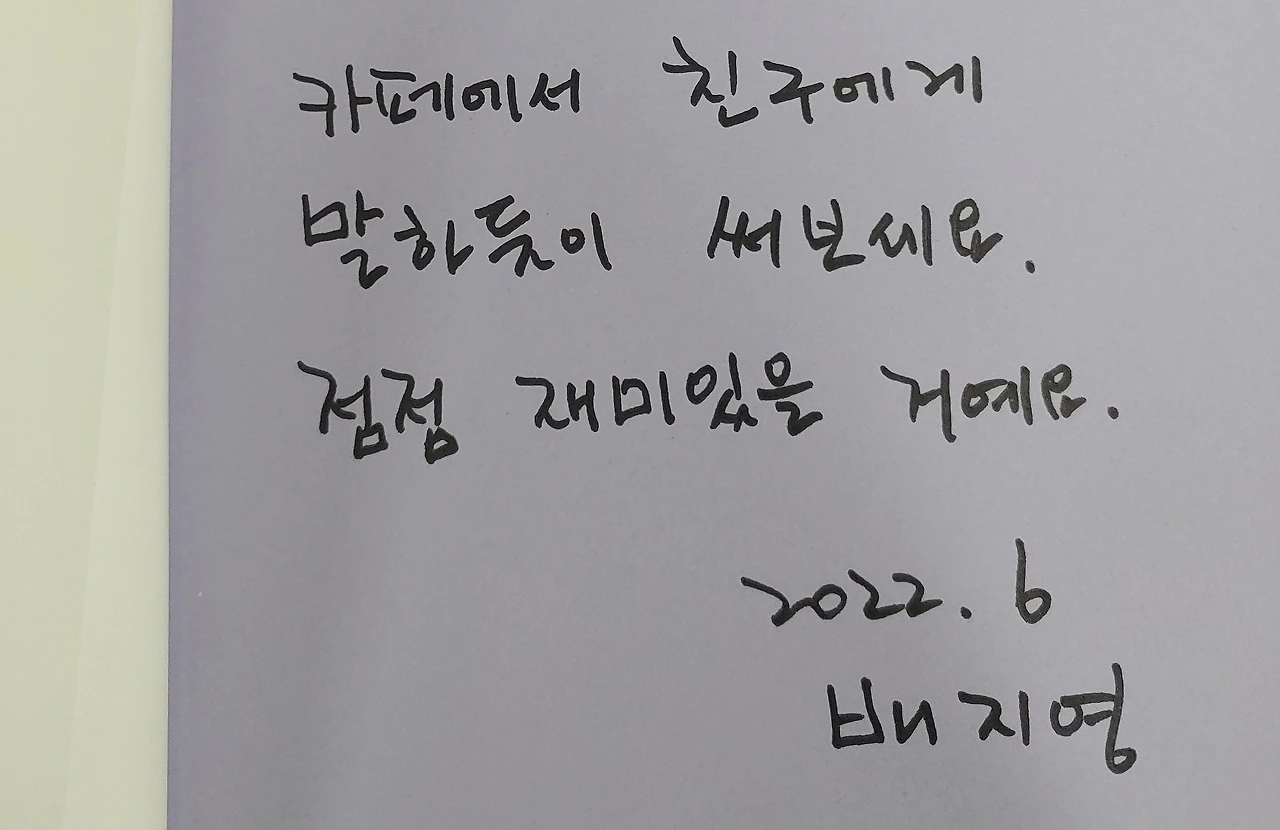 카페에서 친구에게
말하듯이 써보세요.
점점 재미있을 거예요.
2022. 6
배지영